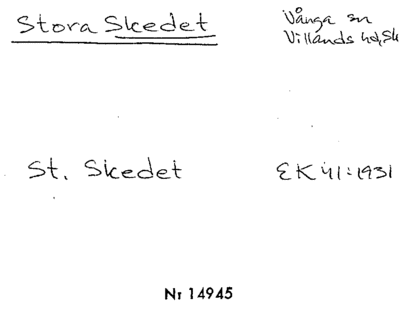 Stora Skedet
Vånga sn
Villands hd, Sk
St. Skedet
EK 41:1931
Nr 14945